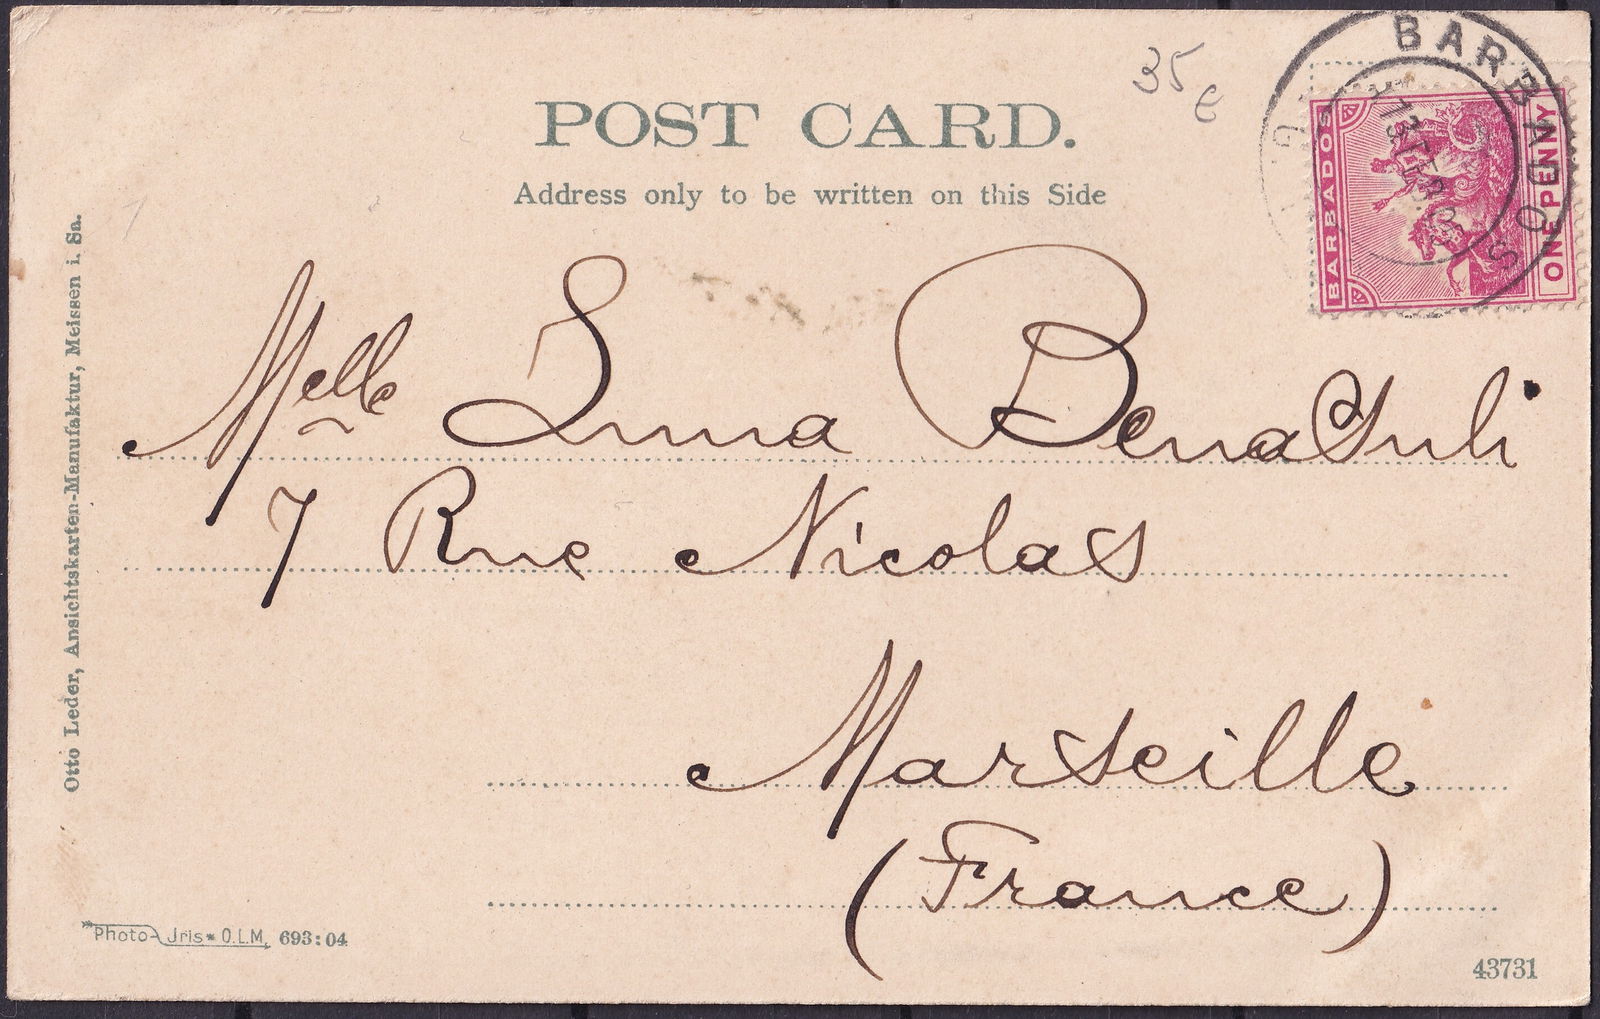 POST CARD.
Address only to be written on this Side
35 €
BARBADOS
BARBADOS
ONE PENNY
Melle Luna Benasuli
7 Rue Nicolas
Marseille
(France)
Otto Leder, Ansichtskarten-Manufaktur, Meissen i. Sa.
Photo-Jris * O.L.M. 693:04
43731